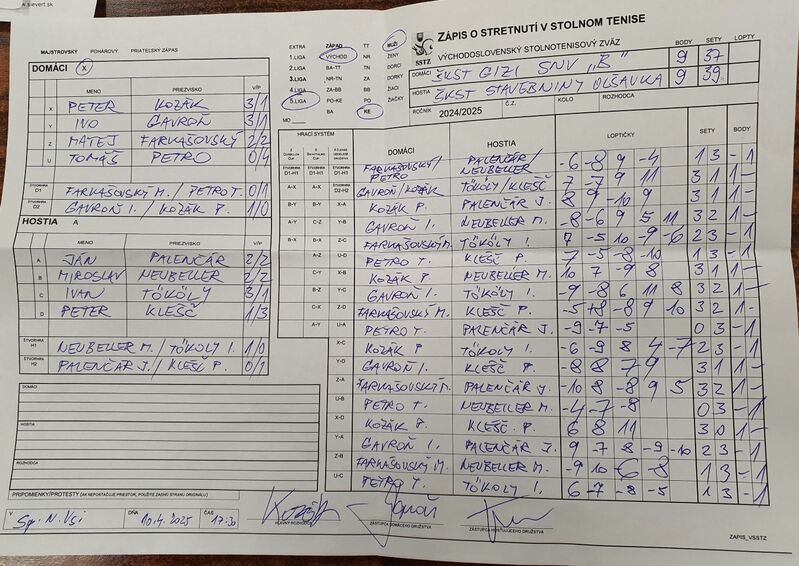 www.sievert.sk
MAJSTROVSKÝ POHÁROVÝ PRIATEĽSKÝ ZÁPAS
DOMÁCI X
MENO PRIEZVISKO V/P
X PETER KOZÁK 3/1
Y IVO GAVROŇ 3/1
Z MATEJ FARKAŠOVSKÝ 2/2
U TOMÁŠ PETRO 0/4
ŠTVORHRA D1 FARKAŠOVSKÝ M. / PETRO T. 0/1
D2 GAVROŇ I. / KOZÁK P. 1/0
HOSTIA A
MENO PRIEZVISKO V/P
A JÁN PALENČÁR 2/2
B MIROSLAV NEUBELLER 2/2
C IVAN TÖKÖLY 3/1
D PETER KLEŠČ 1/3
ŠTVORHRA H1 NEUBELLER M. / TÖKÖLY I. 1/0
ŠTVORHRA H2 PALENČÁR J. / KLEŠČ P. 0/1
DOMÁCI
HOSTIA
ROZHODCA
PRIPOMIENKY/PROTESTY (AK NEPOSTAČUJE PRIESTOR, POUŽITE ZADNÚ STRANU ORIGINÁLU)
V Sp. N. Vsi DŇA 10.4.2025 ČAS 17:30
HLAVNÝ ROZHODCA
ZÁSTUPCA DOMÁCEHO DRUŽSTVA
ZÁSTUPCA HOSŤUJÚCEHO DRUŽSTVA
EXTRA ZÁPAD TT MUŽI
1.LIGA VÝCHOD NR ŽENY
2.LIGA BA-TT TN DORCI
3.LIGA NR-TN ZA DORKY
4.LIGA ZA-BB BB ŽIACI
5.LIGA PO-KE PO ŽIAČKY
MO BA KE
SSTZ
ZÁPIS O STRETNUTÍ V STOLNOM TENISE
VÝCHODOSLOVENSKÝ STOLNOTENISOVÝ ZVÄZ
BODY SETY LOPTY
DOMÁCI ŠKST GIZI SNV „B" 9 37
HOSTIA ŠKST STAVEBNINY OLŠAVKA 9 39
ROČNÍK 2024/2025 Č.Z. KOLO ROZHODCA
HRACÍ SYSTÉM DOMÁCI HOSTIA LOPTIČKY SETY BODY
FARKAŠOVSKÝ/PETRO PALENČÁR/NEUBELLER -6 -8 9 -4 1 3 - 1
GAVROŇ/KOZÁK TÖKÖLY/KLEŠČ 7 -7 9 11 3 1 1 -
KOZÁK P. PALENČÁR J. 8 9 -10 9 3 1 1 -
GAVROŇ I. NEUBELLER M. -8 -6 9 5 11 3 2 1 -
FARKAŠOVSKÝ M. TÖKÖLY I. 7 -5 10 -9 -6 2 3 - 1
PETRO T. KLEŠČ P. 7 -5 -8 -10 1 3 - 1
KOZÁK P. NEUBELLER M. 10 7 -9 8 3 1 1 -
GAVROŇ I. TÖKÖLY I. -9 -8 6 11 8 3 2 1 -
FARKAŠOVSKÝ M. KLEŠČ P. -5 +8 -8 9 10 3 2 1 -
PETRO T. PALENČÁR J. -9 -7 -5 0 3 - 1
KOZÁK P. TÖKÖLY I. -6 -9 8 4 -7 2 3 - 1
GAVROŇ I. KLEŠČ P. -8 8 7 9 3 1 1 -
FARKAŠOVSKÝ M. PALENČÁR J. -10 8 -8 9 5 3 2 1 -
PETRO T. NEUBELLER M. -4 -7 -8 0 3 - 1
KOZÁK P. KLEŠČ P. 6 8 11 3 0 1 -
GAVROŇ I. PALENČÁR J. 9 -7 8 -9 -10 2 3 - 1
FARKAŠOVSKÝ M. NEUBELLER M. -9 10 -6 -8 1 3 - 1
PETRO T. TÖKÖLY I. 6 -7 -8 -5 1 3 - 1
ZAPIS_VSSTZ